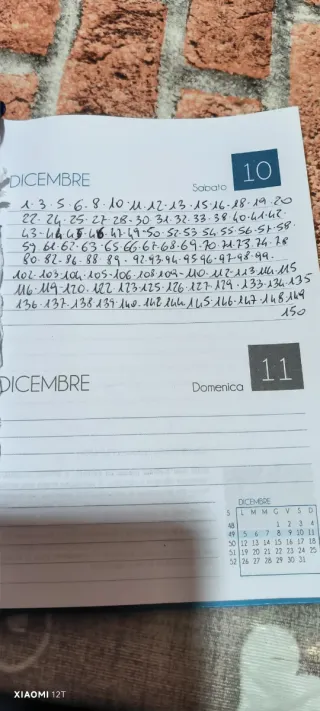 DICEMBRE Sabato 10
1·3·5·6·8·10·11·12·13·15·16·18·19·20
22·24·25·27·28·30·31·32·33·38·40·41·42·
43·44·45·46·47·49·50·52·53·54·55·56·57·58·
59·61·62·63·65·66·67·68·69·70·71·73·74·78
80·82·86·88·89·92·93·94·95·96·97·98·99·
102·103·104·105·106·108·109·110·112·113·114·115
116·119·120·122·123·125·126·127·129·133·134·135
136·137·138·139·140·142·144·145·146·147·148·149
150
DICEMBRE Domenica 11
DICEMBRE
S L M M G V S D
48 1 2 3 4
49 5 6 7 8 9 10 11
50 12 13 14 15 16 17 18
51 19 20 21 22 23 24 25
52 26 27 28 29 30 31
XIAOMI 12T